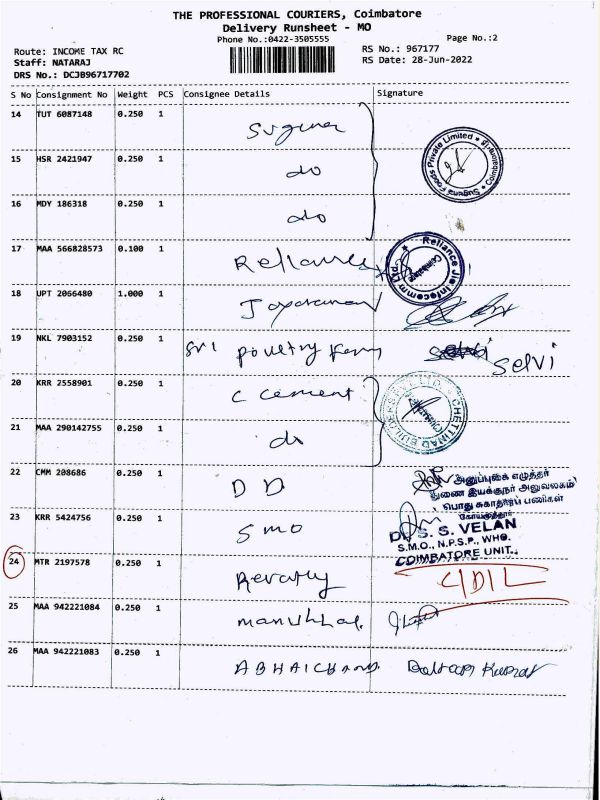 THE PROFESSIONAL COURIERS, Coimbatore
Delivery Runsheet - MO
Phone No.:0422-3505555
Page No.:2
Route: INCOME TAX RC
RS No.: 967177
Staff: NATARAJ
RS Date: 28-Jun-2022
DRS No.: DCJB96717702
S No Consignment No Weight PCS Consignee Details Signature
14 TUT 6087148 0.250 1 Suguna
Suguna Foods Private Limited
15 HSR 2421947 0.250 1 do
16 MDY 186318 0.250 1 do
17 MAA 566828573 0.100 1 Reliance
Reliance Jio Infocomm Ltd.
Coimbatore
18 UPT 2066480 1.000 1
19 NKL 7903152 0.250 1 Sri poultry Selvi
20 KRR 2558901 0.250 1 C cement
CHETTINAD BUILDERS
21 MAA 290142755 0.250 1 do
22 CMM 208686 0.250 1 D D
அனுப்புகை எழுத்தர்
துணை இயக்குநர் அலுவலகம்
பொது சுகாதாரப் பணிகள்
கோயமுத்தூர்
23 KRR 5424756 0.250 1 SMO
Dr. S. S. VELAN
S.M.O., N.P.S.P., WHO.
COIMBATORE UNIT.
24 MTR 2197578 0.250 1
25 MAA 942221084 0.250 1
26 MAA 942221083 0.250 1 ABHAICHAND